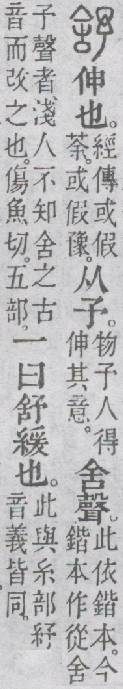 舒伸也。經傳或假荼。或假豫。从予。物予人得伸其意。舍聲。此依鍇本。今鍇本作從舍
予聲者淺人不知舍之古音而改之也。傷魚切。五部。一曰舒緩也。此與糸部紓音義皆同。